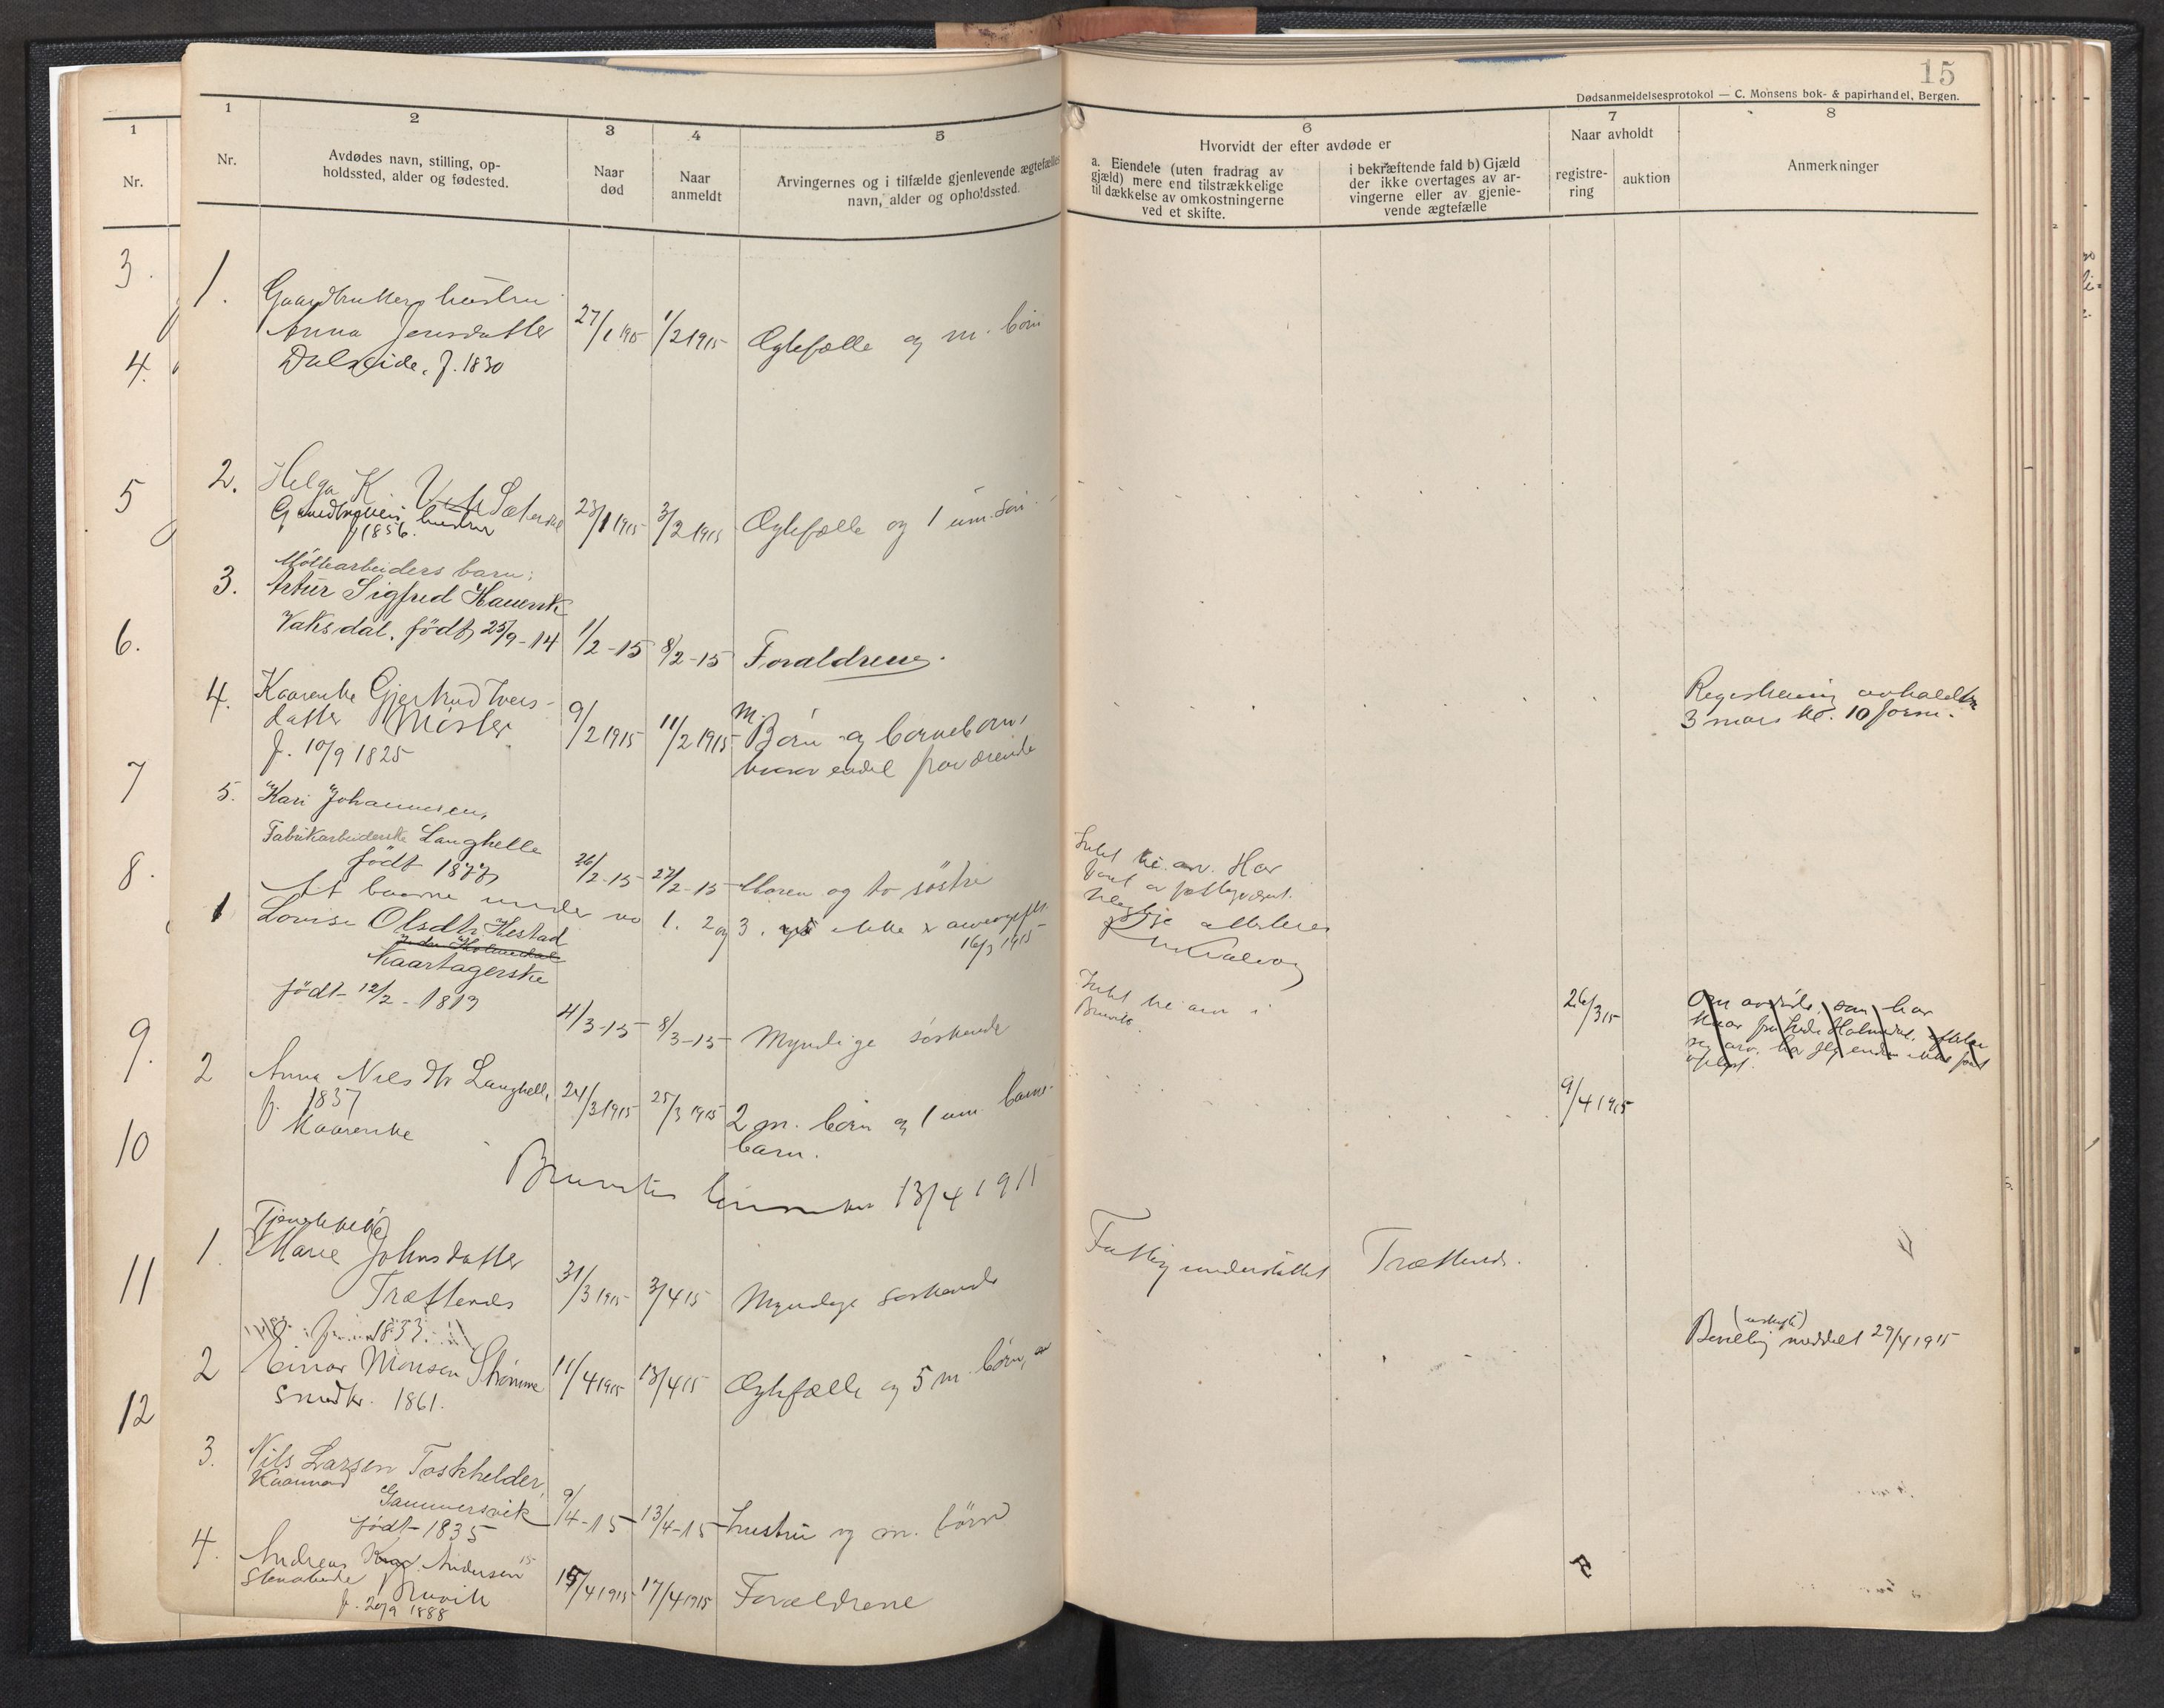 15
Dødsanmeldelsesprotokol — C. Monsens bok- & papirhandel, Bergen.
1
Nr.
3.
4.
5
6.
7
8.
9.
10
11
12
1
2
3
4
5
6
7
8
Nr.
Avdødes navn, stilling, op-
holdssted, alder og fødested.
Naar
død
Naar
anmeldt
Arvingernes og i tilfælde gjenlevende ægtefælles
navn, alder og opholdssted.
Hvorvidt der efter avdøde er
a. Eiendele (uten fradrag av
gjæld) mere end tilstrækkelige
til dækkelse av omkostningerne
ved et skifte.
i bekræftende fald b) Gjæld
der ikke overtages av ar-
vingerne eller av gjenle-
vende ægtefælle
Naar avholdt
registre-
ring
auktion
Anmerkninger
1. Gaardbrukers hustru
Anna Jensdatter
Dalseide. f. 1830
27/1 1915 1/2 1915 Ægtefælle og m. børn
2. Helga K
Gaardbrukers hustru
f 1856.
23/1 1915 3/2 1915 Ægtefælle og 1 um. søn
3. Møllearbeiders barn:
Artur Sigfred
Vaksdal. født 25/9-14 1/2-15 8/2-15 Forældrene.
4. Kaarenke Gjertrud Ivers-
datter Mjøster
f. 10/9 1825
9/2 1915 11/2 1915 M. Børn og børnebørn,
hvorav endel fraværende
Registrering avholdes
3 mars kl. 10 form.
5. Kari Johannesen,
Fabrikarbeiderske Langhelle
født 1877
26/2-15 27/2-15 Moren og to søstre
Intet til arv. Har
attesteres
At boerne under no 1. 2 og 3. ikke er
16/3 1915
1 Louise Olsdtr. Hestad
Kaartagerske
født 12/2-1819
4/3-15 8/3-15 Myndige søskende
Intet til arv i
26/3 15
2 Anna Nilsdtr Langhelle,
f. 1837
Kaarenke
24/3 1915 25/3 1915 2 m. børn og 1 um. barne-
barn.
9/4 1915
Bruvik 13/4 1915
1. Tjenestepike
Marie Johnsdatter
Trættenes
f. 1833.
31/3 1915 3/4 15 Myndige søskende
Fattigunderstøttet Trættenes.
2 Einar Monsen Strømme
Snedker. 1861.
11/4 1915 13/4 15 Ægtefælle og 5 m. børn,
(uskifte)
Bevilling meddelt 29/4 1915
3. Nils Larsen Toskhelder,
Kaarmand
Gammersvik
født 1835
9/4-15 13/4-15 hustru og m. børn
4. Andreas Andersen
f. 20/9 1888
15/4 1915 17/4 1915 Forældrene